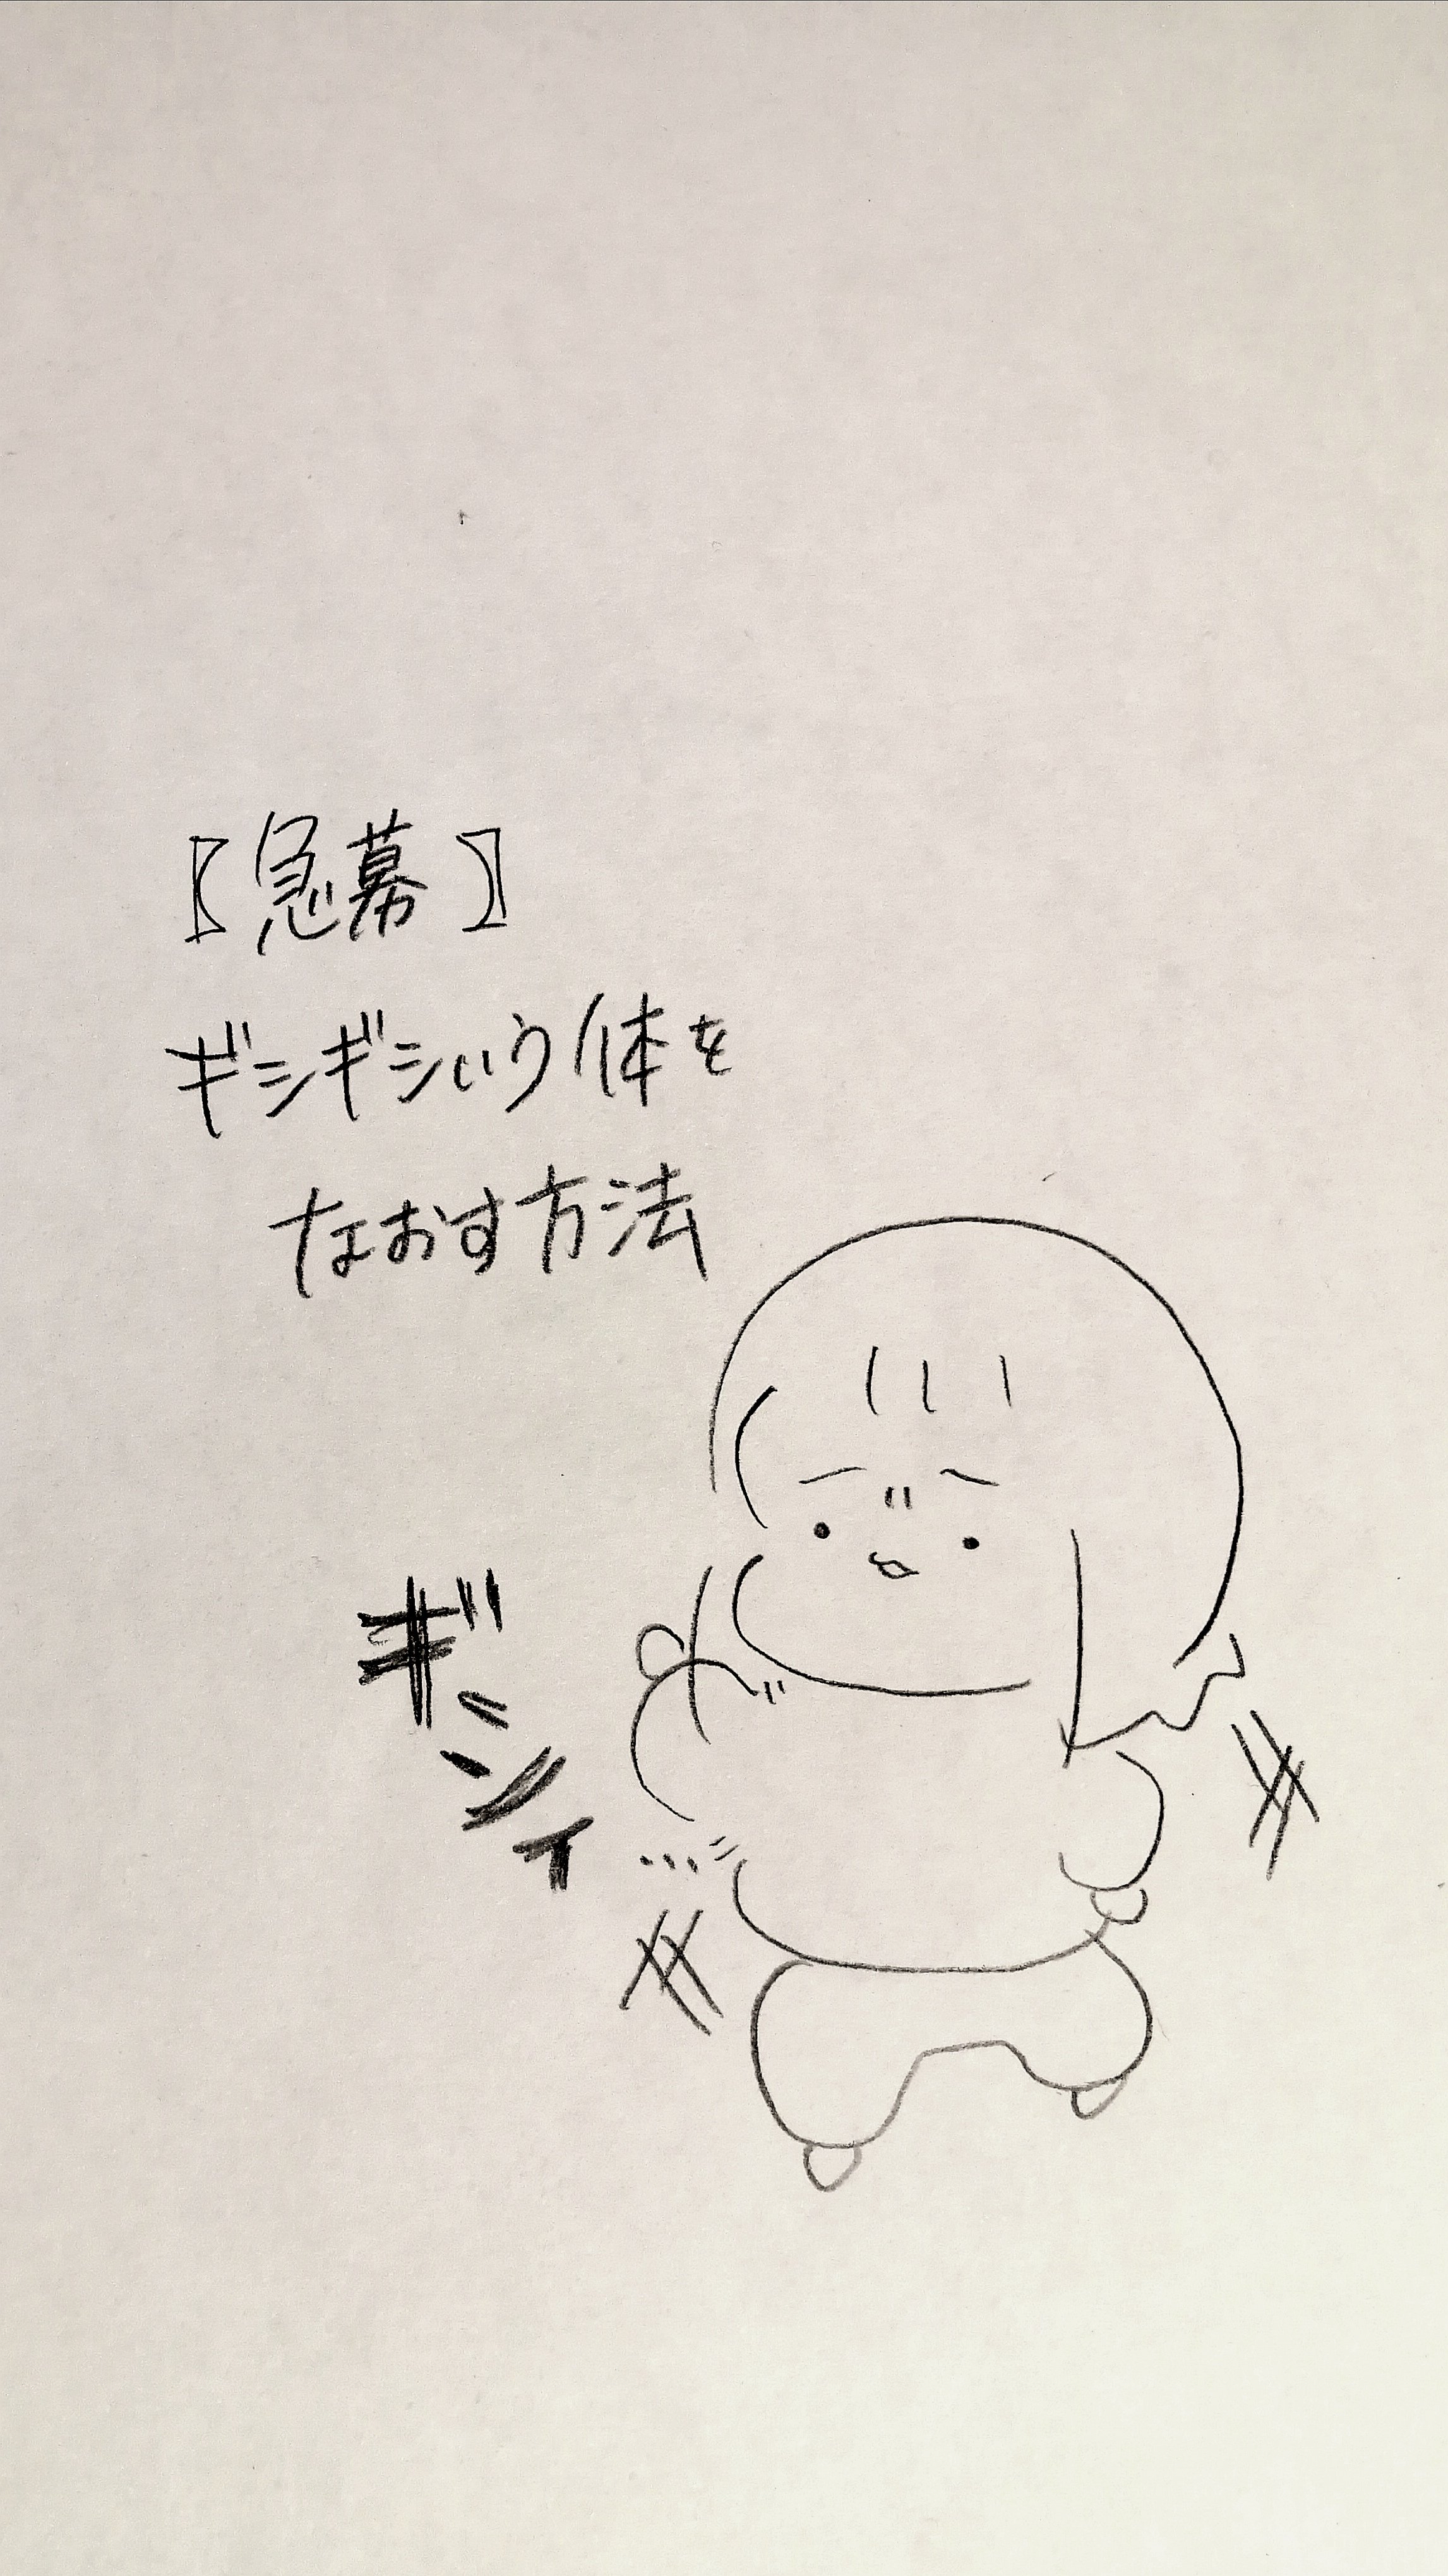 【急募】
ギシギシいう体を
なおす方法
ギシィ